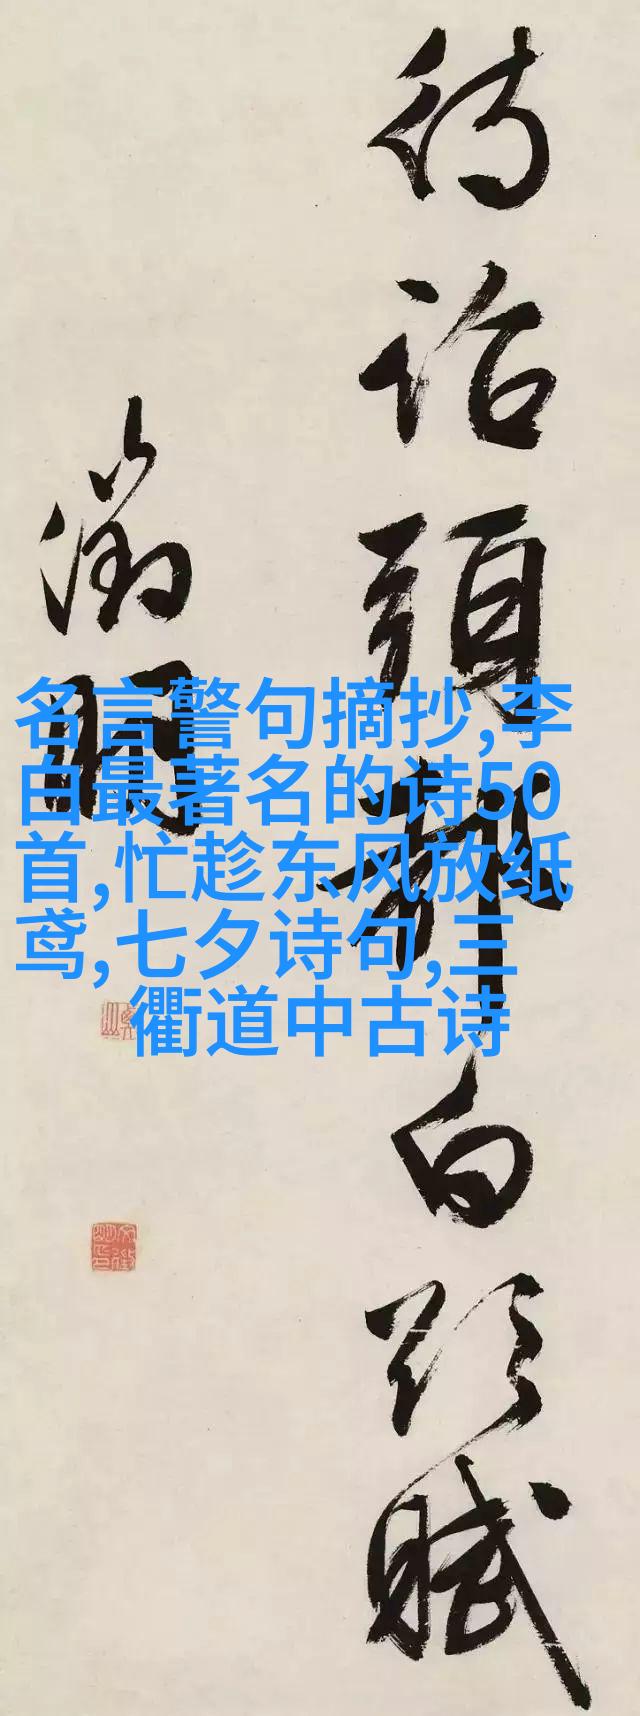 待詔頭白賦
徵明
名言警句摘抄,李
白最著名的诗50
首,忙趁东风放纸
鸢,七夕诗句,三
衢道中古诗